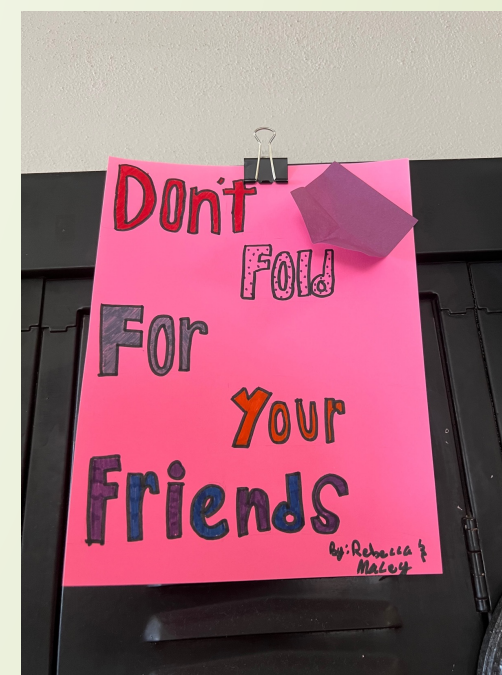 Don't
Fold
For
Your
Friends
By: Rebecca &
Maley